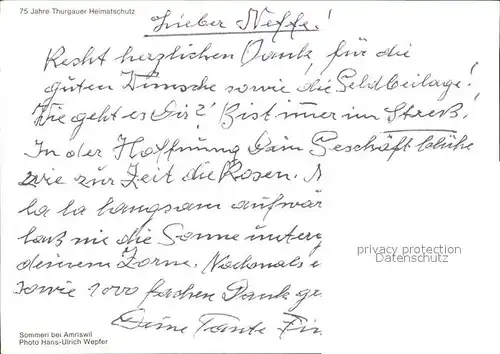 75 Jahre Thurgauer Heimatschutz
Lieber Neffe!
Recht herzlichen Dank, für die
guten Wünsche sowie die Geldbeilage!
Wie geht es Dir? Bist imer im Streß.
In der Hoffnung Dein Geschäft blühe
wie zur Zeit die Rosen.
la la langsam aufwär
laß nie die Sonne unter
deinem Zorne. Nochmals
sowie 1000 fachen Dank
Deine Tante
privacy protection
Datenschutz
Sommeri bei Amriswil
Photo Hans-Ulrich Wepfer